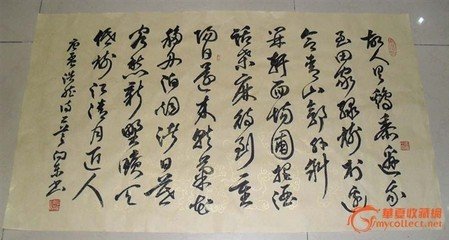 故人具鷄黍邀我
至田家绿树村边
合青山郭外斜
开轩面场圃把酒
话桑麻待到重
阳日还来就菊花
移舟泊烟渚日暮
客愁新野旷天
低树江清月近人
庚寅浩然诗二首
華夏收藏網
mycollect.net